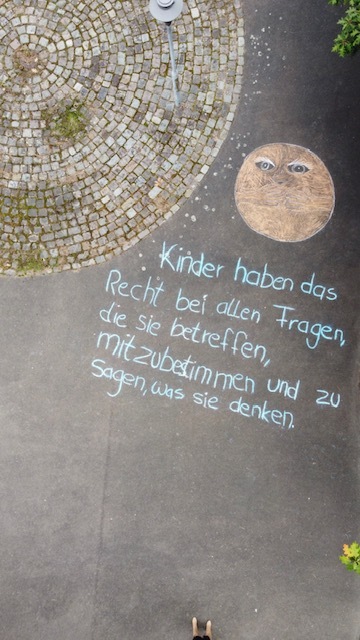 Kinder haben das
Recht bei allen Fragen,
die sie betreffen,
mitzubestimmen und zu
sagen, was sie denken.